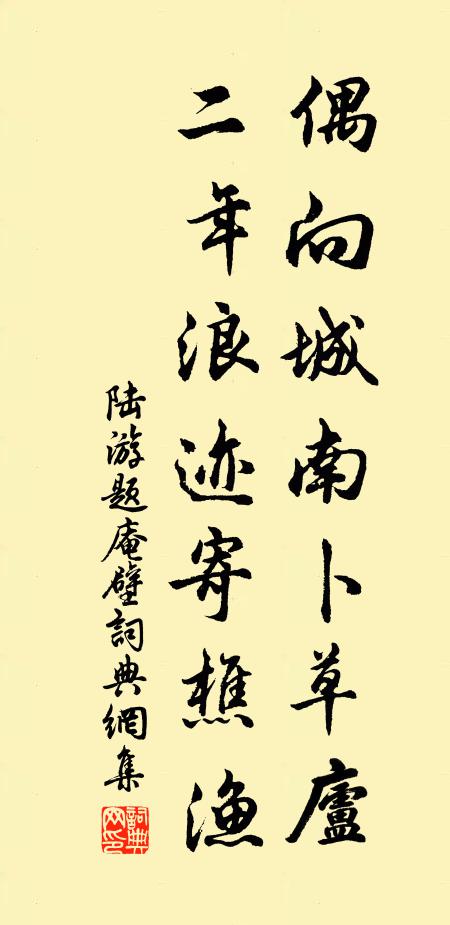 偶向城南卜草廬
二年浪迹寄樵渔
陆游題庵壁詞典網集
詞典网印